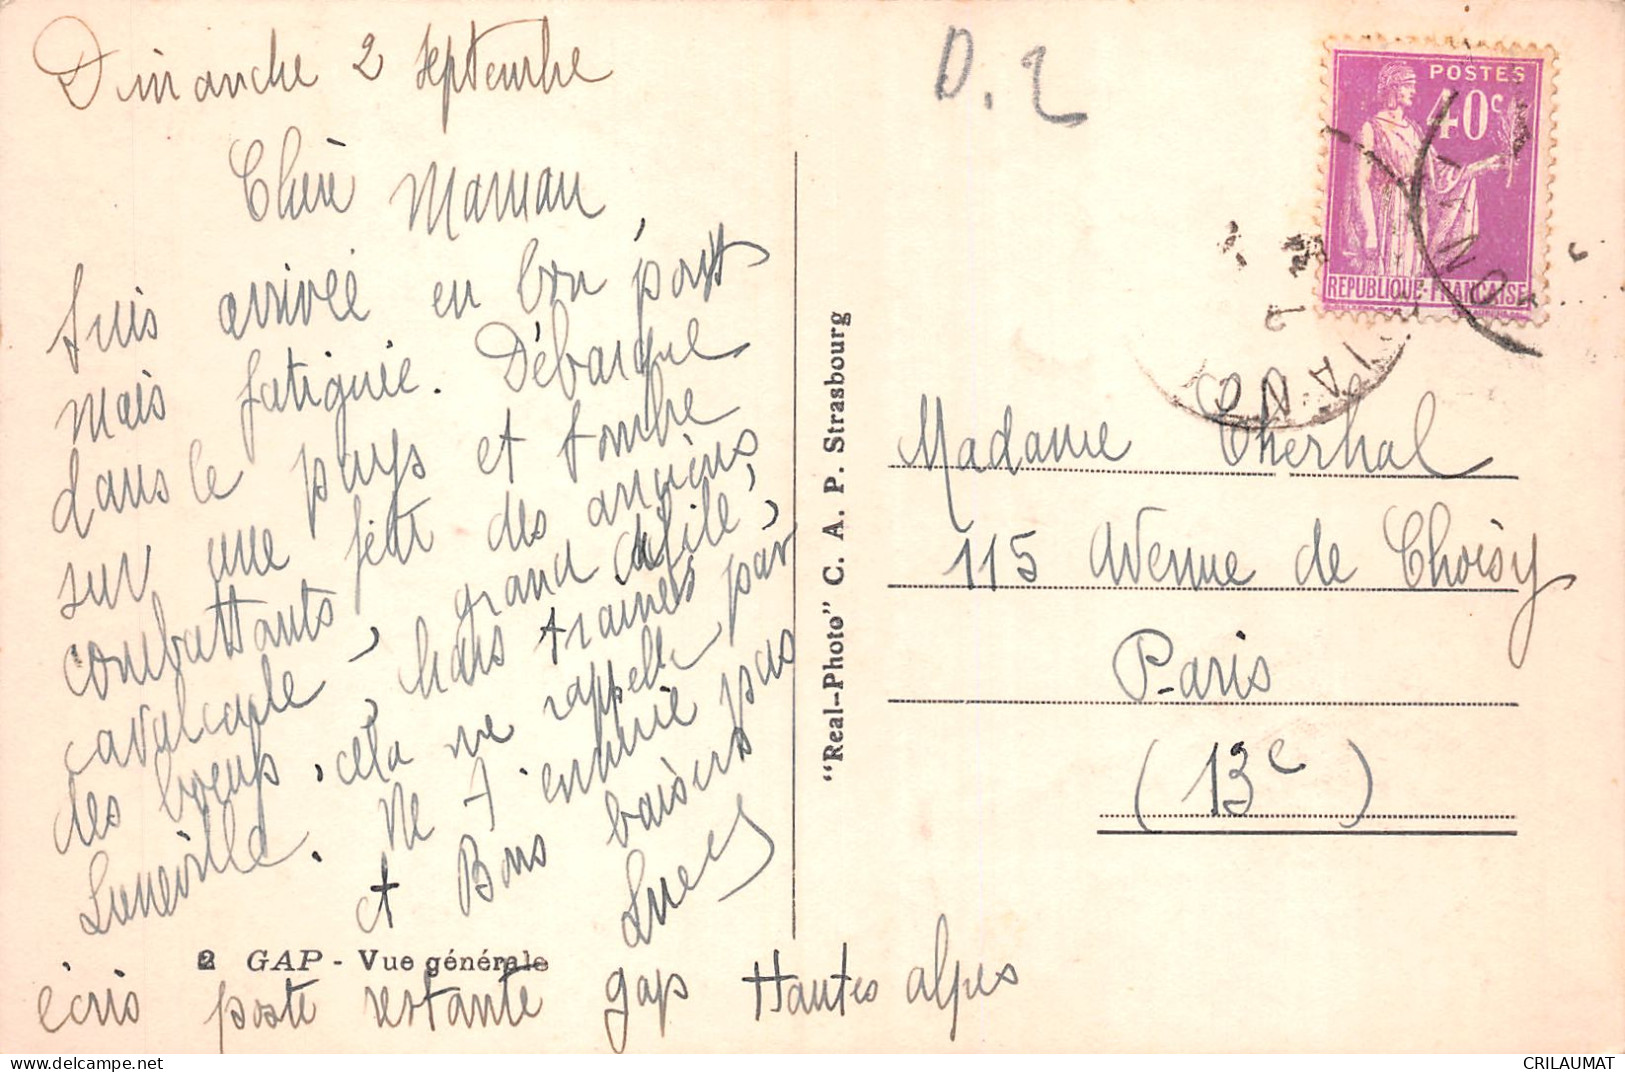 Dimanche 2 septembre
Chère Maman
suis arrivée en bon port
mais fatiguée. Débarque
dans le pays et tombe
sur une fête des anciens
combattants, grand défilé,
cavalcade, chars trainés par
des boeufs. cela me rappelle
Luneville. Ne t'ennuie pas
et Bons baisers
2 GAP - Vue générale
écris poste restante gap Hautes alpes
"Real-Photo" C. A. P. Strasbourg
D. 2
POSTES
40c
REPUBLIQUE-FRANÇAISE
Madame Cherhal
115 Avenue de Choisy
Paris
(13e)
CRILAUMAT